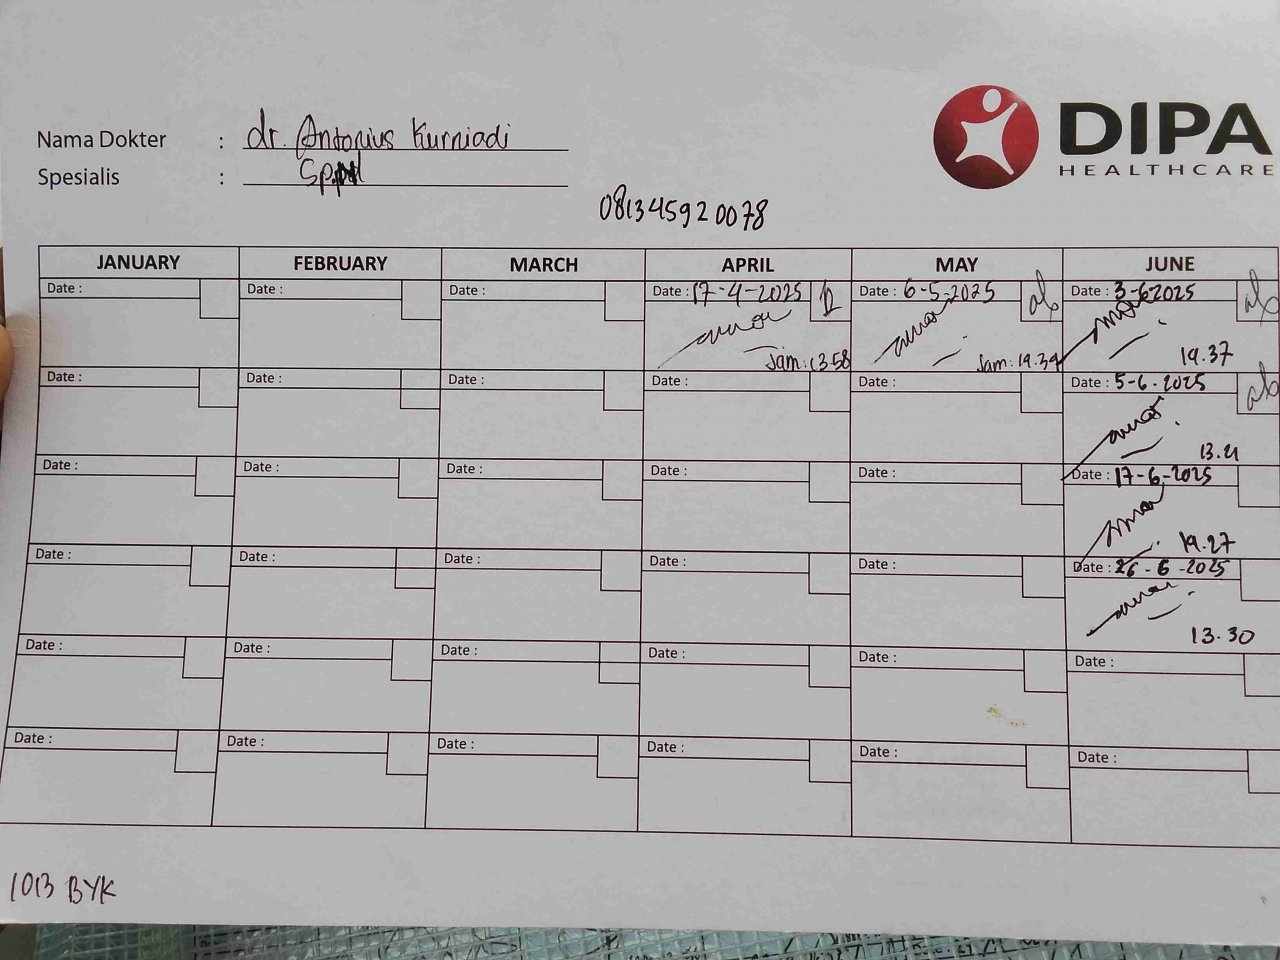 Nama Dokter : dr. Antonius Kurniadi
Spesialis :
DIPA
HEALTHCARE
081345920078
JANUARY FEBRUARY MARCH APRIL MAY JUNE
Date : Date : Date : Date : 17-4-2025 Date : 6-5-2025 Date : 3-62025
Jam : 13.58 Jam : 19.39 19.37
Date : Date : Date : Date : Date : Date : 5-6-2025
13.21
Date : Date : Date : Date : Date : Date : 17-6-2025
19.27
Date : Date : Date : Date : Date : Date : 26-6-2025
13.30
Date : Date : Date : Date : Date : Date :
Date : Date : Date : Date : Date : Date :
1013 BYK